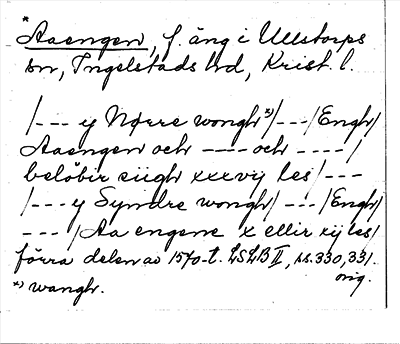 *
Aaengen, f. äng i Ullstorps
sn, Ingelstads hd, Krist. l.
/--- y Nørre wongh*)/---/Engh/
Aaengen och ---- och ----/
belöbir siigh xxxvij les/---
/--- y Syndre wongh/---/Engh/
---/Aa engene x ellir xij les/
förra delen av 1570-t. LSLB II, ss. 330, 331.
orig.
*) wangh.